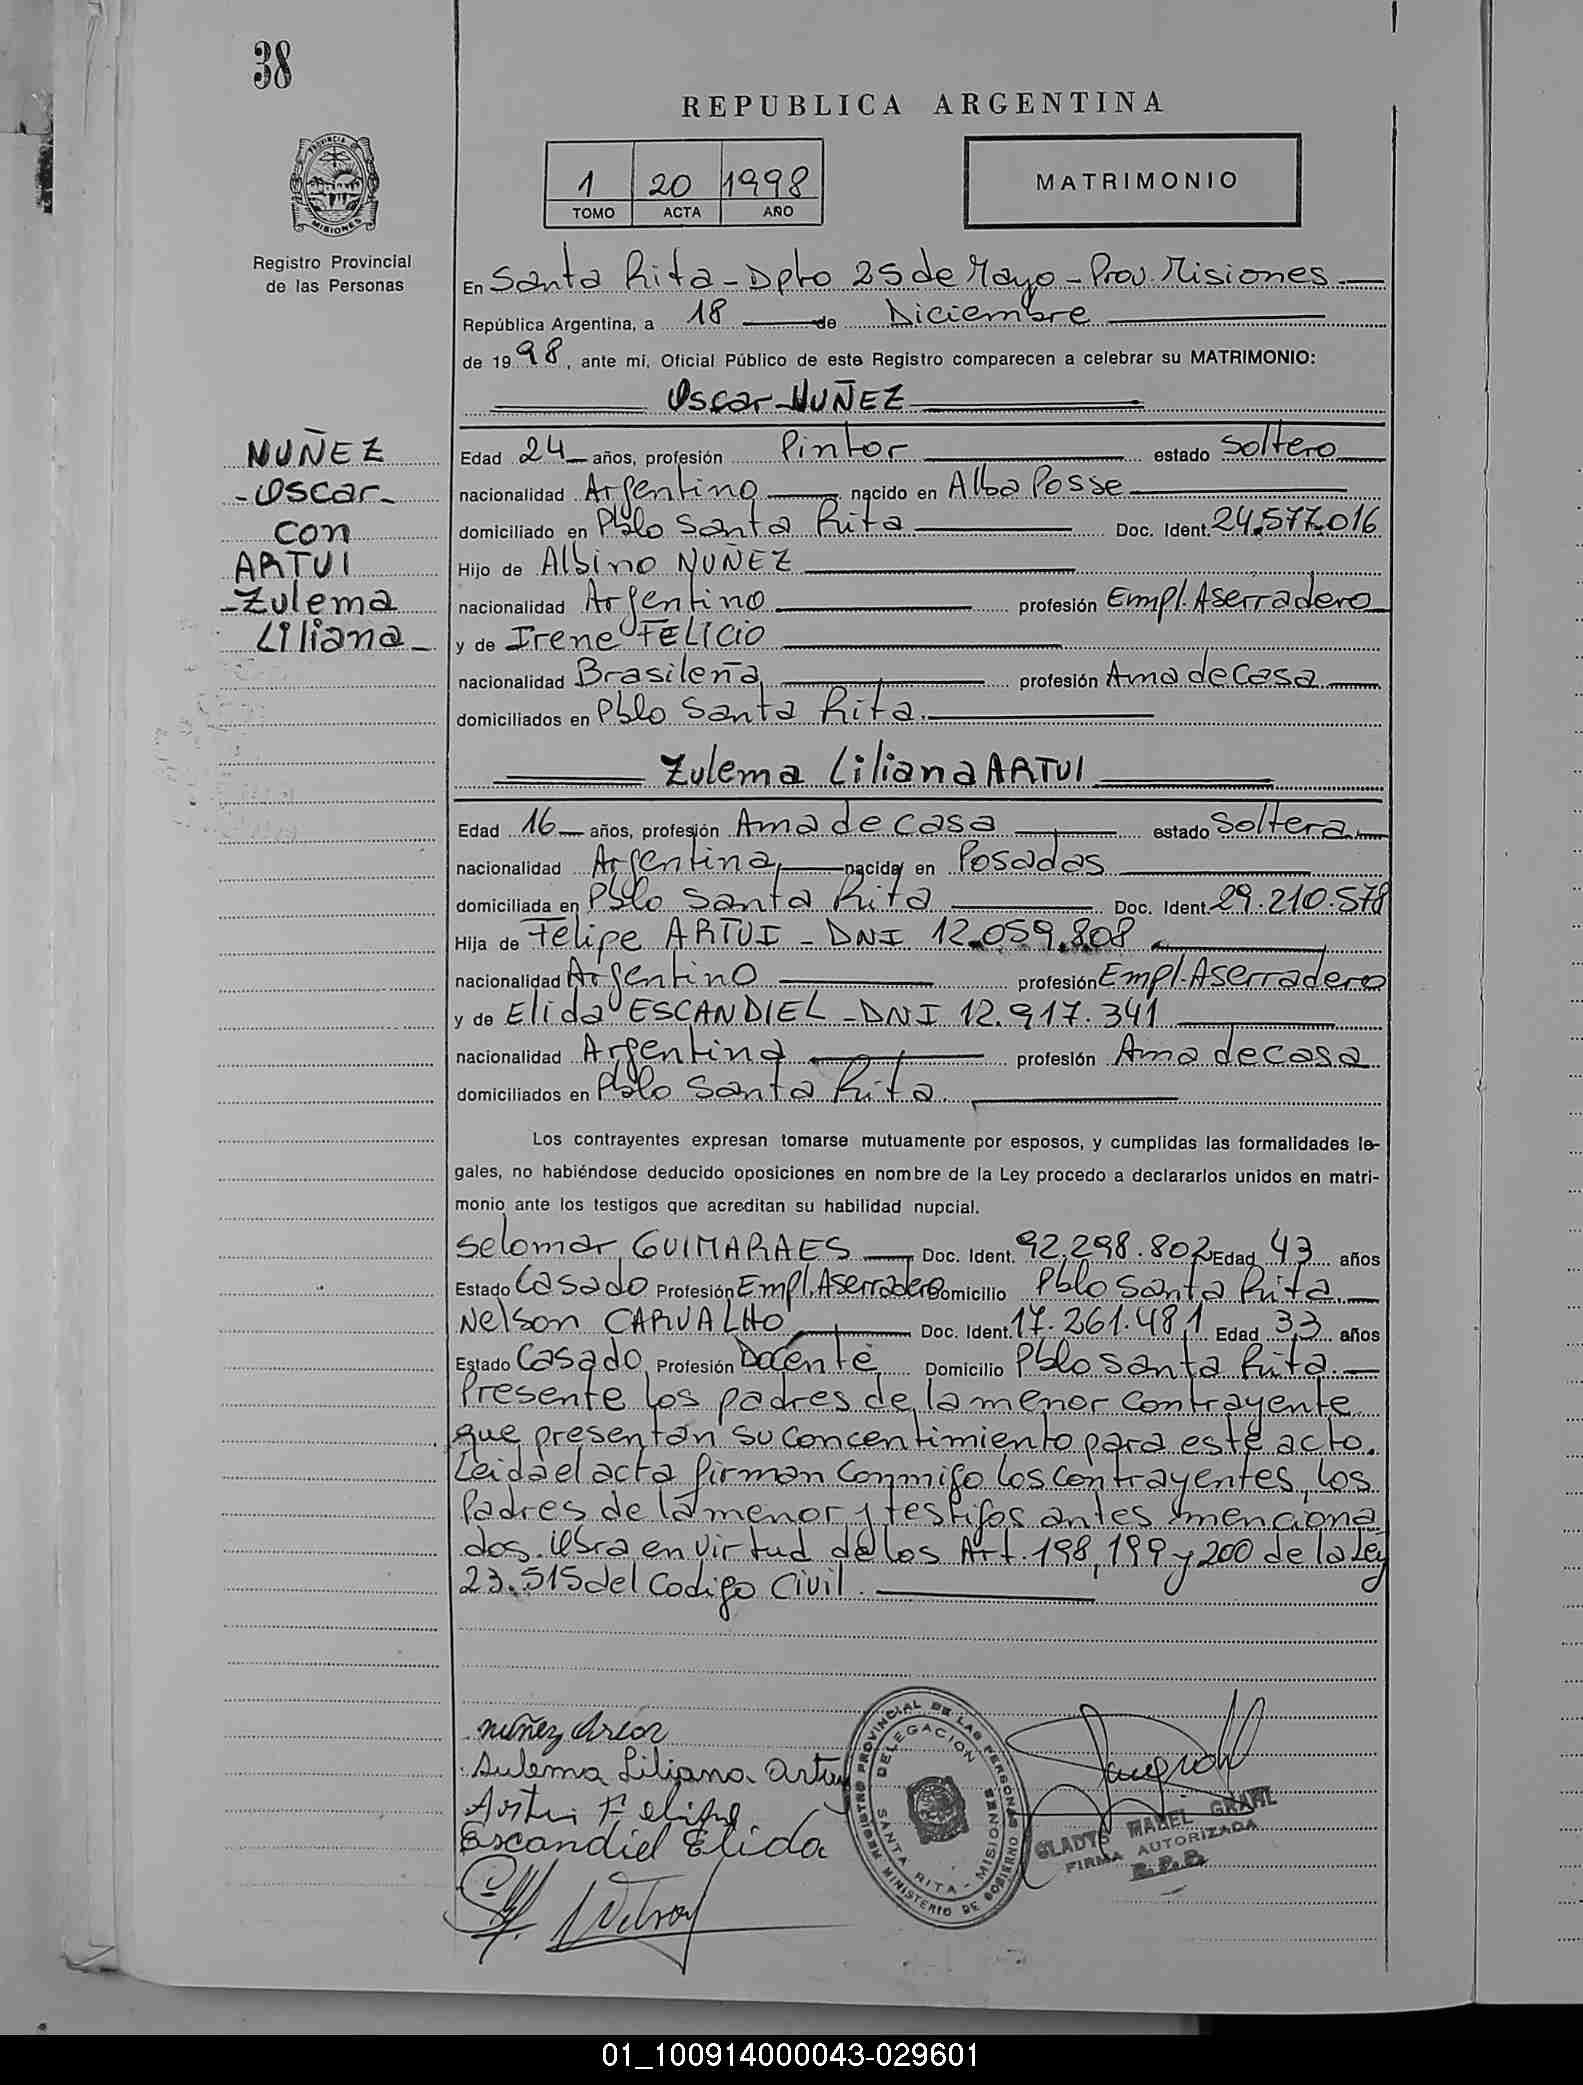 38
REPUBLICA ARGENTINA
PROVINCIA DE MISIONES
Registro Provincial
de las Personas
1 20 1998
TOMO ACTA AÑO
MATRIMONIO
En Santa Rita - Dpto 25 de Mayo - Prov. Misiones
República Argentina, a 18 de Diciembre
de 1998, ante mi, Oficial Público de este Registro comparecen a celebrar su MATRIMONIO:
Oscar NUÑEZ
NUÑEZ
- Oscar -
con
ARTUI
- Zulema
Liliana -
Edad 24 años, profesión Pintor estado Soltero
nacionalidad Argentino nacido en Alba Posse
domiciliado en Pblo Santa Rita Doc. Ident. 24.577.016
Hijo de Albino NUÑEZ
nacionalidad Argentino profesión Empl. Aserradero
y de Irene FELICIO
nacionalidad Brasileña profesión Ama de Casa
domiciliados en Pblo Santa Rita.
Zulema Liliana ARTUI
Edad 16 años, profesión Ama de casa estado Soltera
nacionalidad Argentina nacida en Posadas
domiciliada en Pblo Santa Rita Doc. Ident. 29.210.578
Hija de Felipe ARTUI - DNI 12.059.808
nacionalidad Argentino profesión Empl. Aserradero
y de Elida ESCANDIEL - DNI 12.917.341
nacionalidad Argentina profesión Ama de casa
domiciliados en Pblo Santa Rita.
Los contrayentes expresan tomarse mutuamente por esposos, y cumplidas las formalidades le-
gales, no habiéndose deducido oposiciones en nombre de la Ley procedo a declararlos unidos en matri-
monio ante los testigos que acreditan su habilidad nupcial.
Selomar GUIMARAES Doc. Ident. 92.298.802 Edad 43 años
Estado Casado Profesión Empl. Aserradero Domicilio Pblo Santa Rita.
Nelson CARVALHO Doc. Ident. 17.261.481 Edad 33 años
Estado Casado Profesión Docente Domicilio Pblo Santa Rita.
Presente los padres de la menor contrayente
que presentan su concentimiento para este acto.
Leida el acta firman conmigo los contrayentes, los
Padres de la menor y testigos antes menciona
dos. Obra en virtud de los Art. 198, 199 y 200 de la Ley
23.515 del Codigo Civil.
Nuñez Oscar
Sulema Liliana Artuy
Artui Felipe
Escandiel Elida
REGISTRO PROVINCIAL DE LAS PERSONAS
MINISTERIO DE GOBIERNO
DELEGACION
SANTA RITA - MISIONES
GLADYS MABEL
FIRMA AUTORIZADA
R.P.P.
01_100914000043-029601